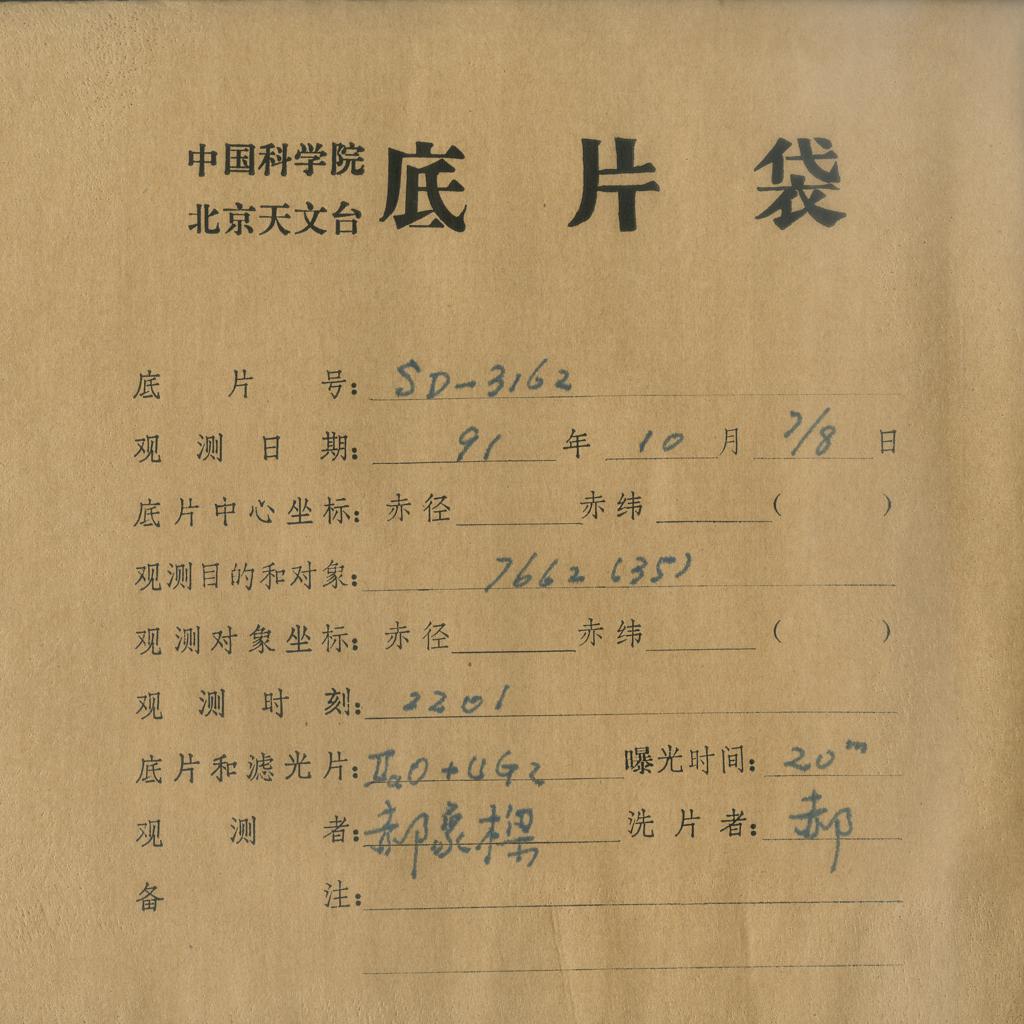 中国科学院
北京天文台 底片袋
底片号: SD-3162
观测日期: 91 年 10 月 7/8 日
底片中心坐标: 赤径 赤纬 ( )
观测目的和对象: 7662 (35)
观测对象坐标: 赤径 赤纬 ( )
观测时刻: 2201
底片和滤光片: IIaO+UG2 曝光时间: 20m
观测者: 郝象樑 洗片者: 郝
备注: